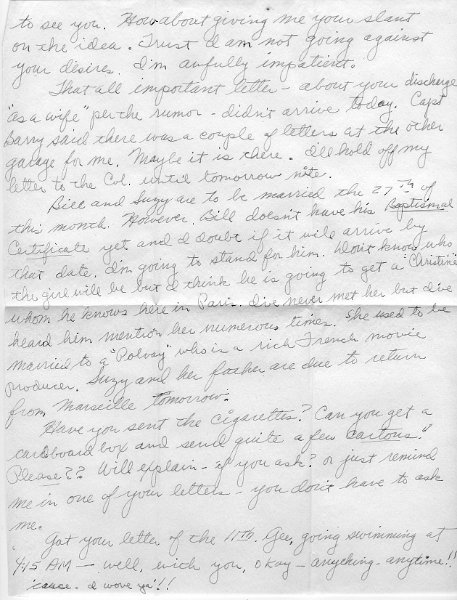 to see you. How about giving me your slant
on the idea. Trust I am not going against
your desires. I'm awfully impatient.
That all important letter - about your discharge
"as a wife" per the rumor - didn't arrive today. Capt
Barry said there was a couple of letters at the other
garage for me. Maybe it is there. I'll hold off my
letter to the Col. until tomorrow nite.
Bill and Suzy are to be married the 27th of
this month. However, Bill doesn't have his Baptismal
Certificate yet and I doubt if it will arrive by
that date. I'm going to stand for him. Don't know who
the girl will be but I think he is going to get a "Christine"
whom he knows here in Paris. I've never met her but I've
heard him mention her numerous times. She used to be
married to a "Polvay" who is a rich French movie
producer. Suzy and her father are due to return
from Marseille tomorrow.
Have you sent the cigarettes? Can you get a
cardboard box and send quite a few cartons?
Please?? Will explain - if you ask? or just remind
me in one of your letters - you don't have to ask
me.
Got your letter of the 11th. Gee, going swimming at
4:15 AM - well, with you, okay - anything - anytime!!
'cause - I wove ya'!!